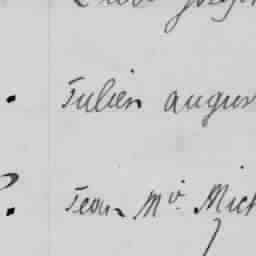 Julien augus
Jean Mie Mich